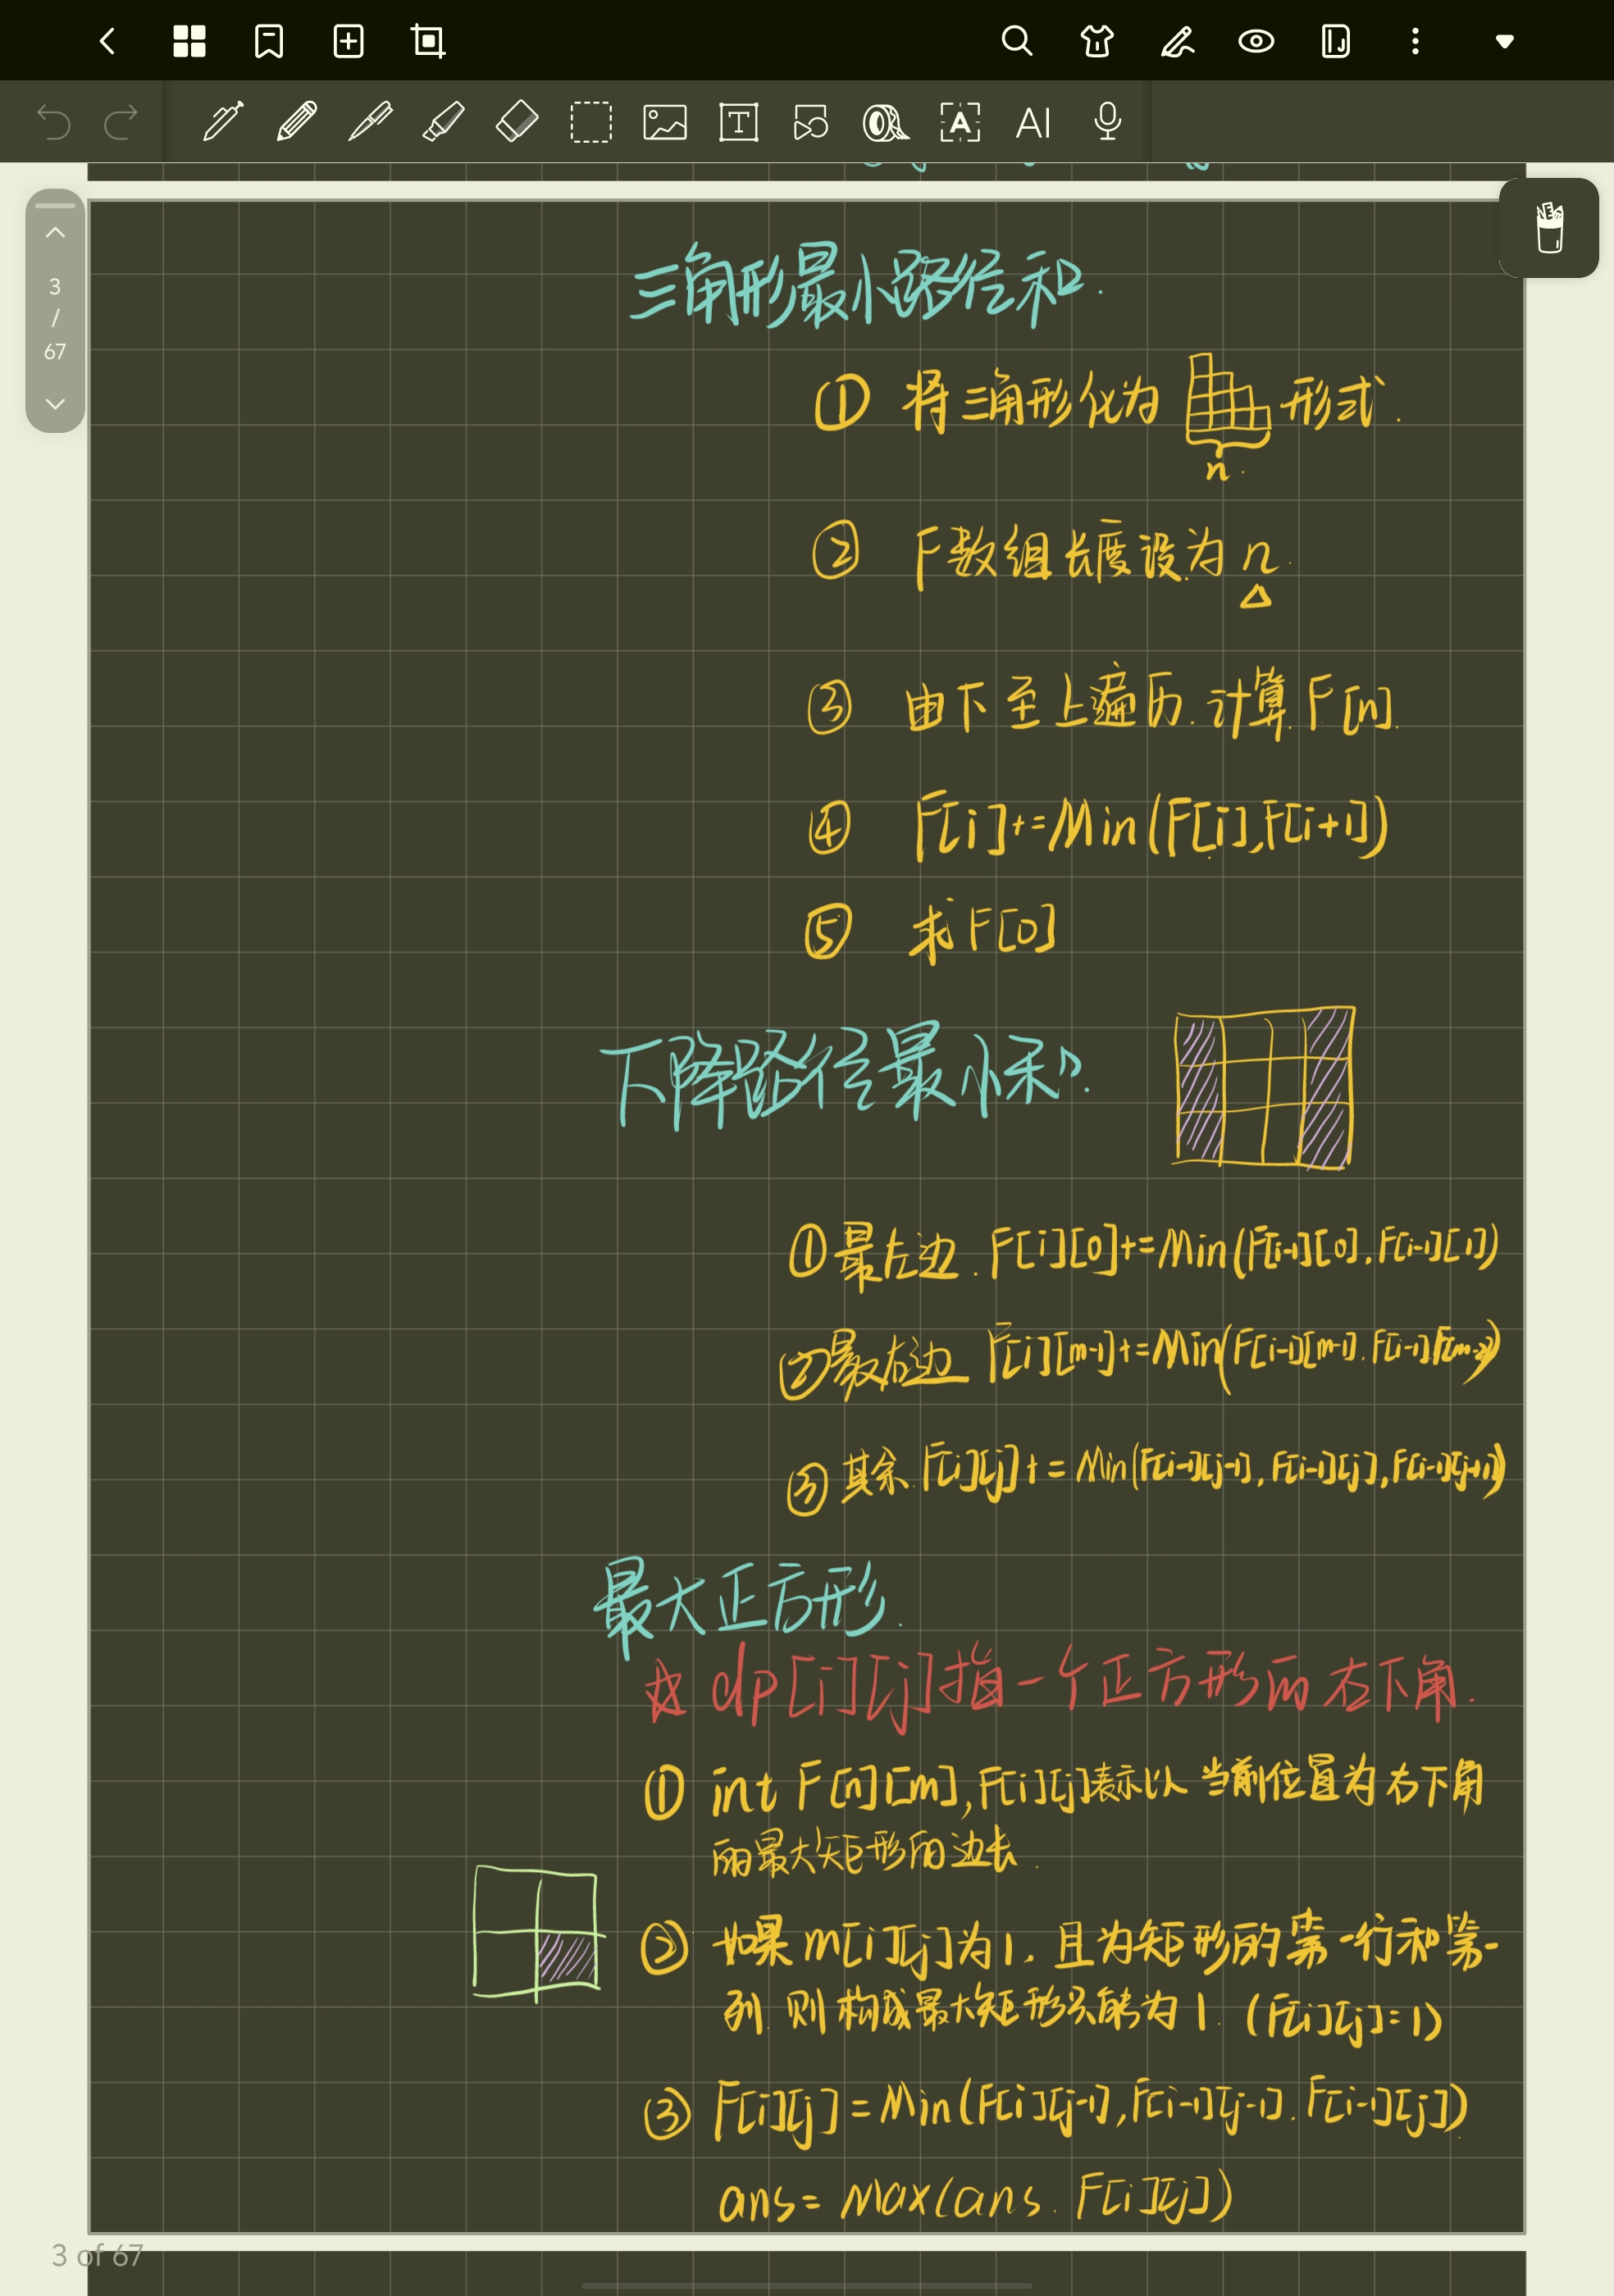 AI
3
/
67
三角形最小路径和.
① 将三角形化为 形式.
n.
② F数组长度设为 n.
③ 由下至上遍历.计算.F[n].
④ F[i]+=Min(F[i],F[i+1])
⑤ 求F[0]
下降路径最小和.
①最左边.F[i][0]+=Min(F[i-1][0].F[i-1][1])
②最右边 F[i][m-1]+=Min(F[i-1][m-1].F[i-1]
③其余.F[i][j]+=Min(F[i-1][j-1],F[i-1][j],F[i-1][j+1])
最大正方形.
dp[i][j]指一个正方形的右下角.
① int F[n][m],F[i][j]表示以当前位置为右下角
的最大矩形的边长.
② 如果m[i][j]为1.且为矩形的第一行和第一
列.则构成最大矩形只能为1.(F[i][j]=1)
③ F[i][j]=Min(F[i][j-1],F[i-1][j-1].F[i-1][j])
ans=Max(ans.F[i][j])
3 of 67